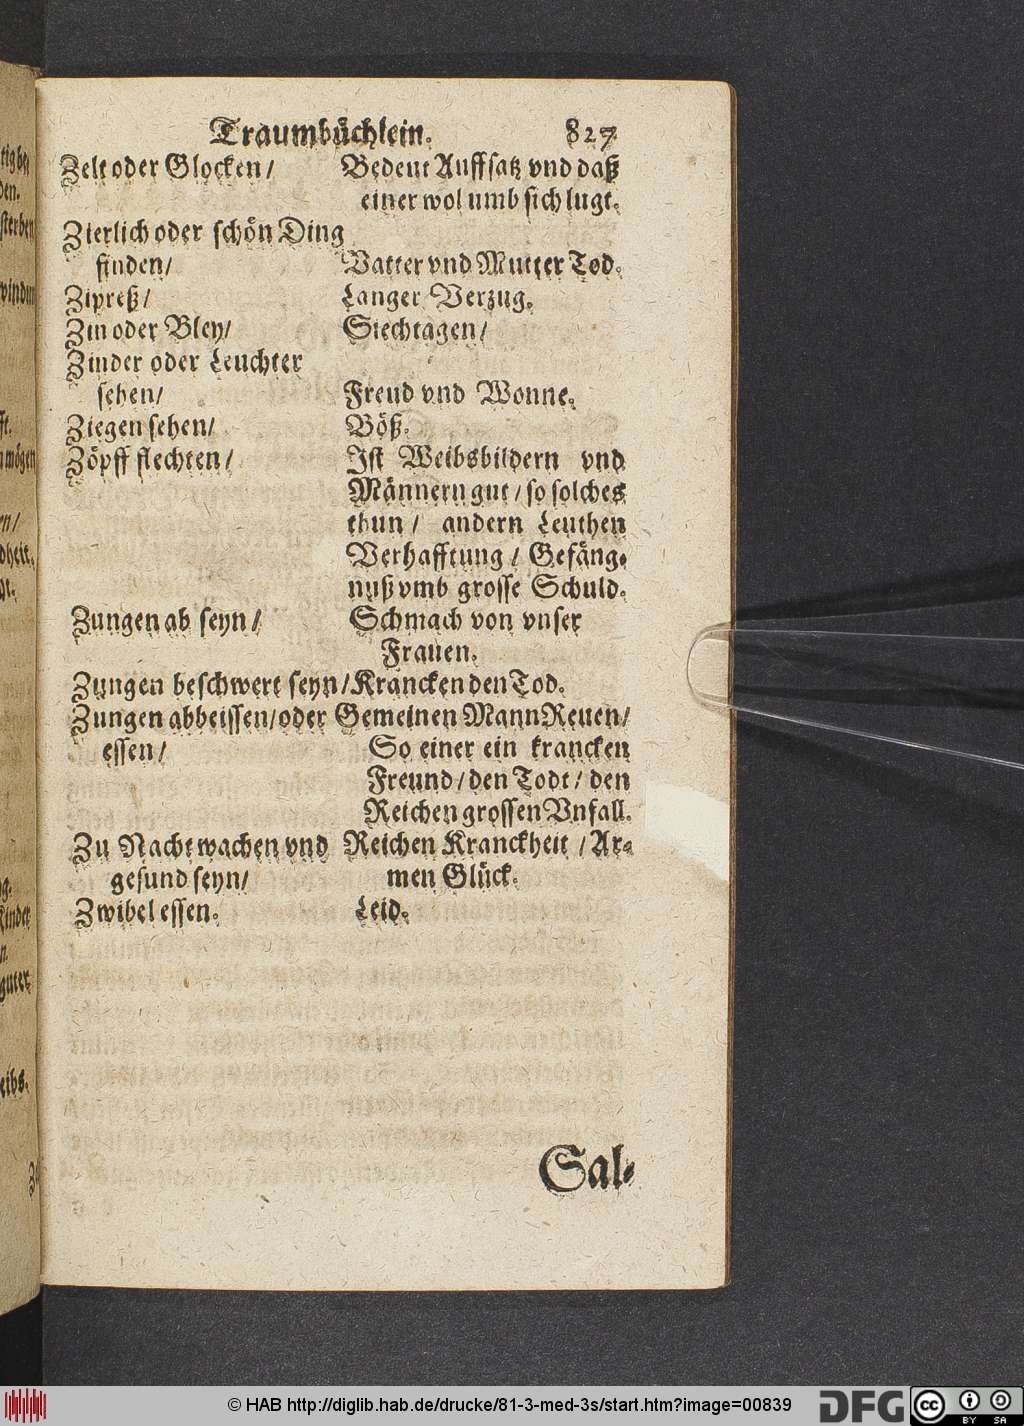 Traumbüchlein. 827
Zelt oder Glocken / Bedeut Auffsatz vnd daß
einer wol umb sich lugt.
Zierlich oder schön Ding
finden / Vatter vnd Mutter Tod.
Zipreß / Langer Verzug.
Zin oder Bley / Siechtagen /
Zinder oder Leuchter
sehen / Freud vnd Wonne.
Ziegen sehen / Böß.
Zöpff flechten / Ist Weibsbildern vnd
Männern gut / so solches
thun / andern Leuthen
Verhafftung / Gefäng-
nuß vmb grosse Schuld.
Zungen ab seyn / Schmach von vnser
Frauen.
Zungen beschwert seyn / Krancken den Tod.
Zungen abbeissen / oder Gemeinen Mann Reuen /
essen / So einer ein krancken
Freund / den Todt / den
Reichen grossen Vnfall.
Zu Nacht wachen vnd Reichen Kranckheit / Ar-
gesund seyn / men Glück.
Zwibel essen. Leid.
Sal-
© HAB http://diglib.hab.de/drucke/81-3-med-3s/start.htm?image=00839
DFG
cc
BY SA